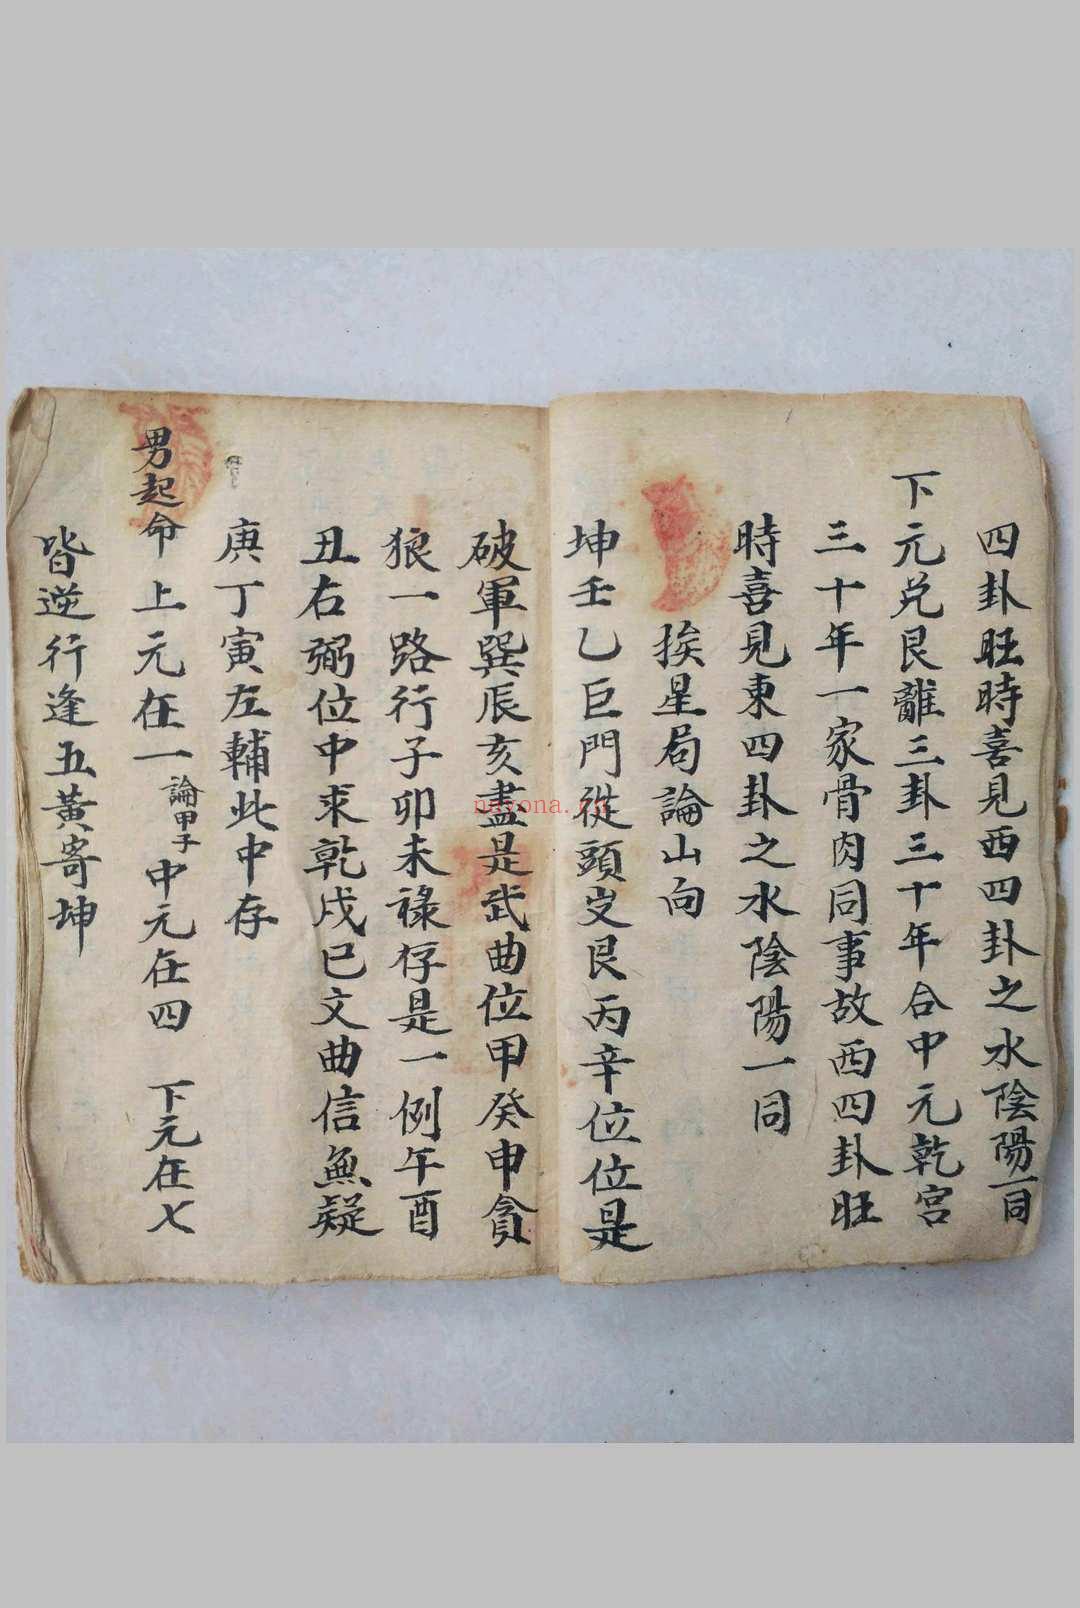 四卦旺時喜見西四卦之水陰陽一同
下元兑艮離三卦三十年合中元乾宮
三十年一家骨肉同事故西四卦旺
時喜見東四卦之水陰陽一同
挨星局論山向
坤壬乙巨門從頭出艮丙辛位位是
破軍巽辰亥盡是武曲位甲癸申貪
狼一路行子卯未祿存是一例午酉
丑右弼位中求乾戌巳文曲信無疑
庚丁寅左輔此中存
男起命上元在一論甲子中元在四 下元在七
皆逆行逢五黃寄坤